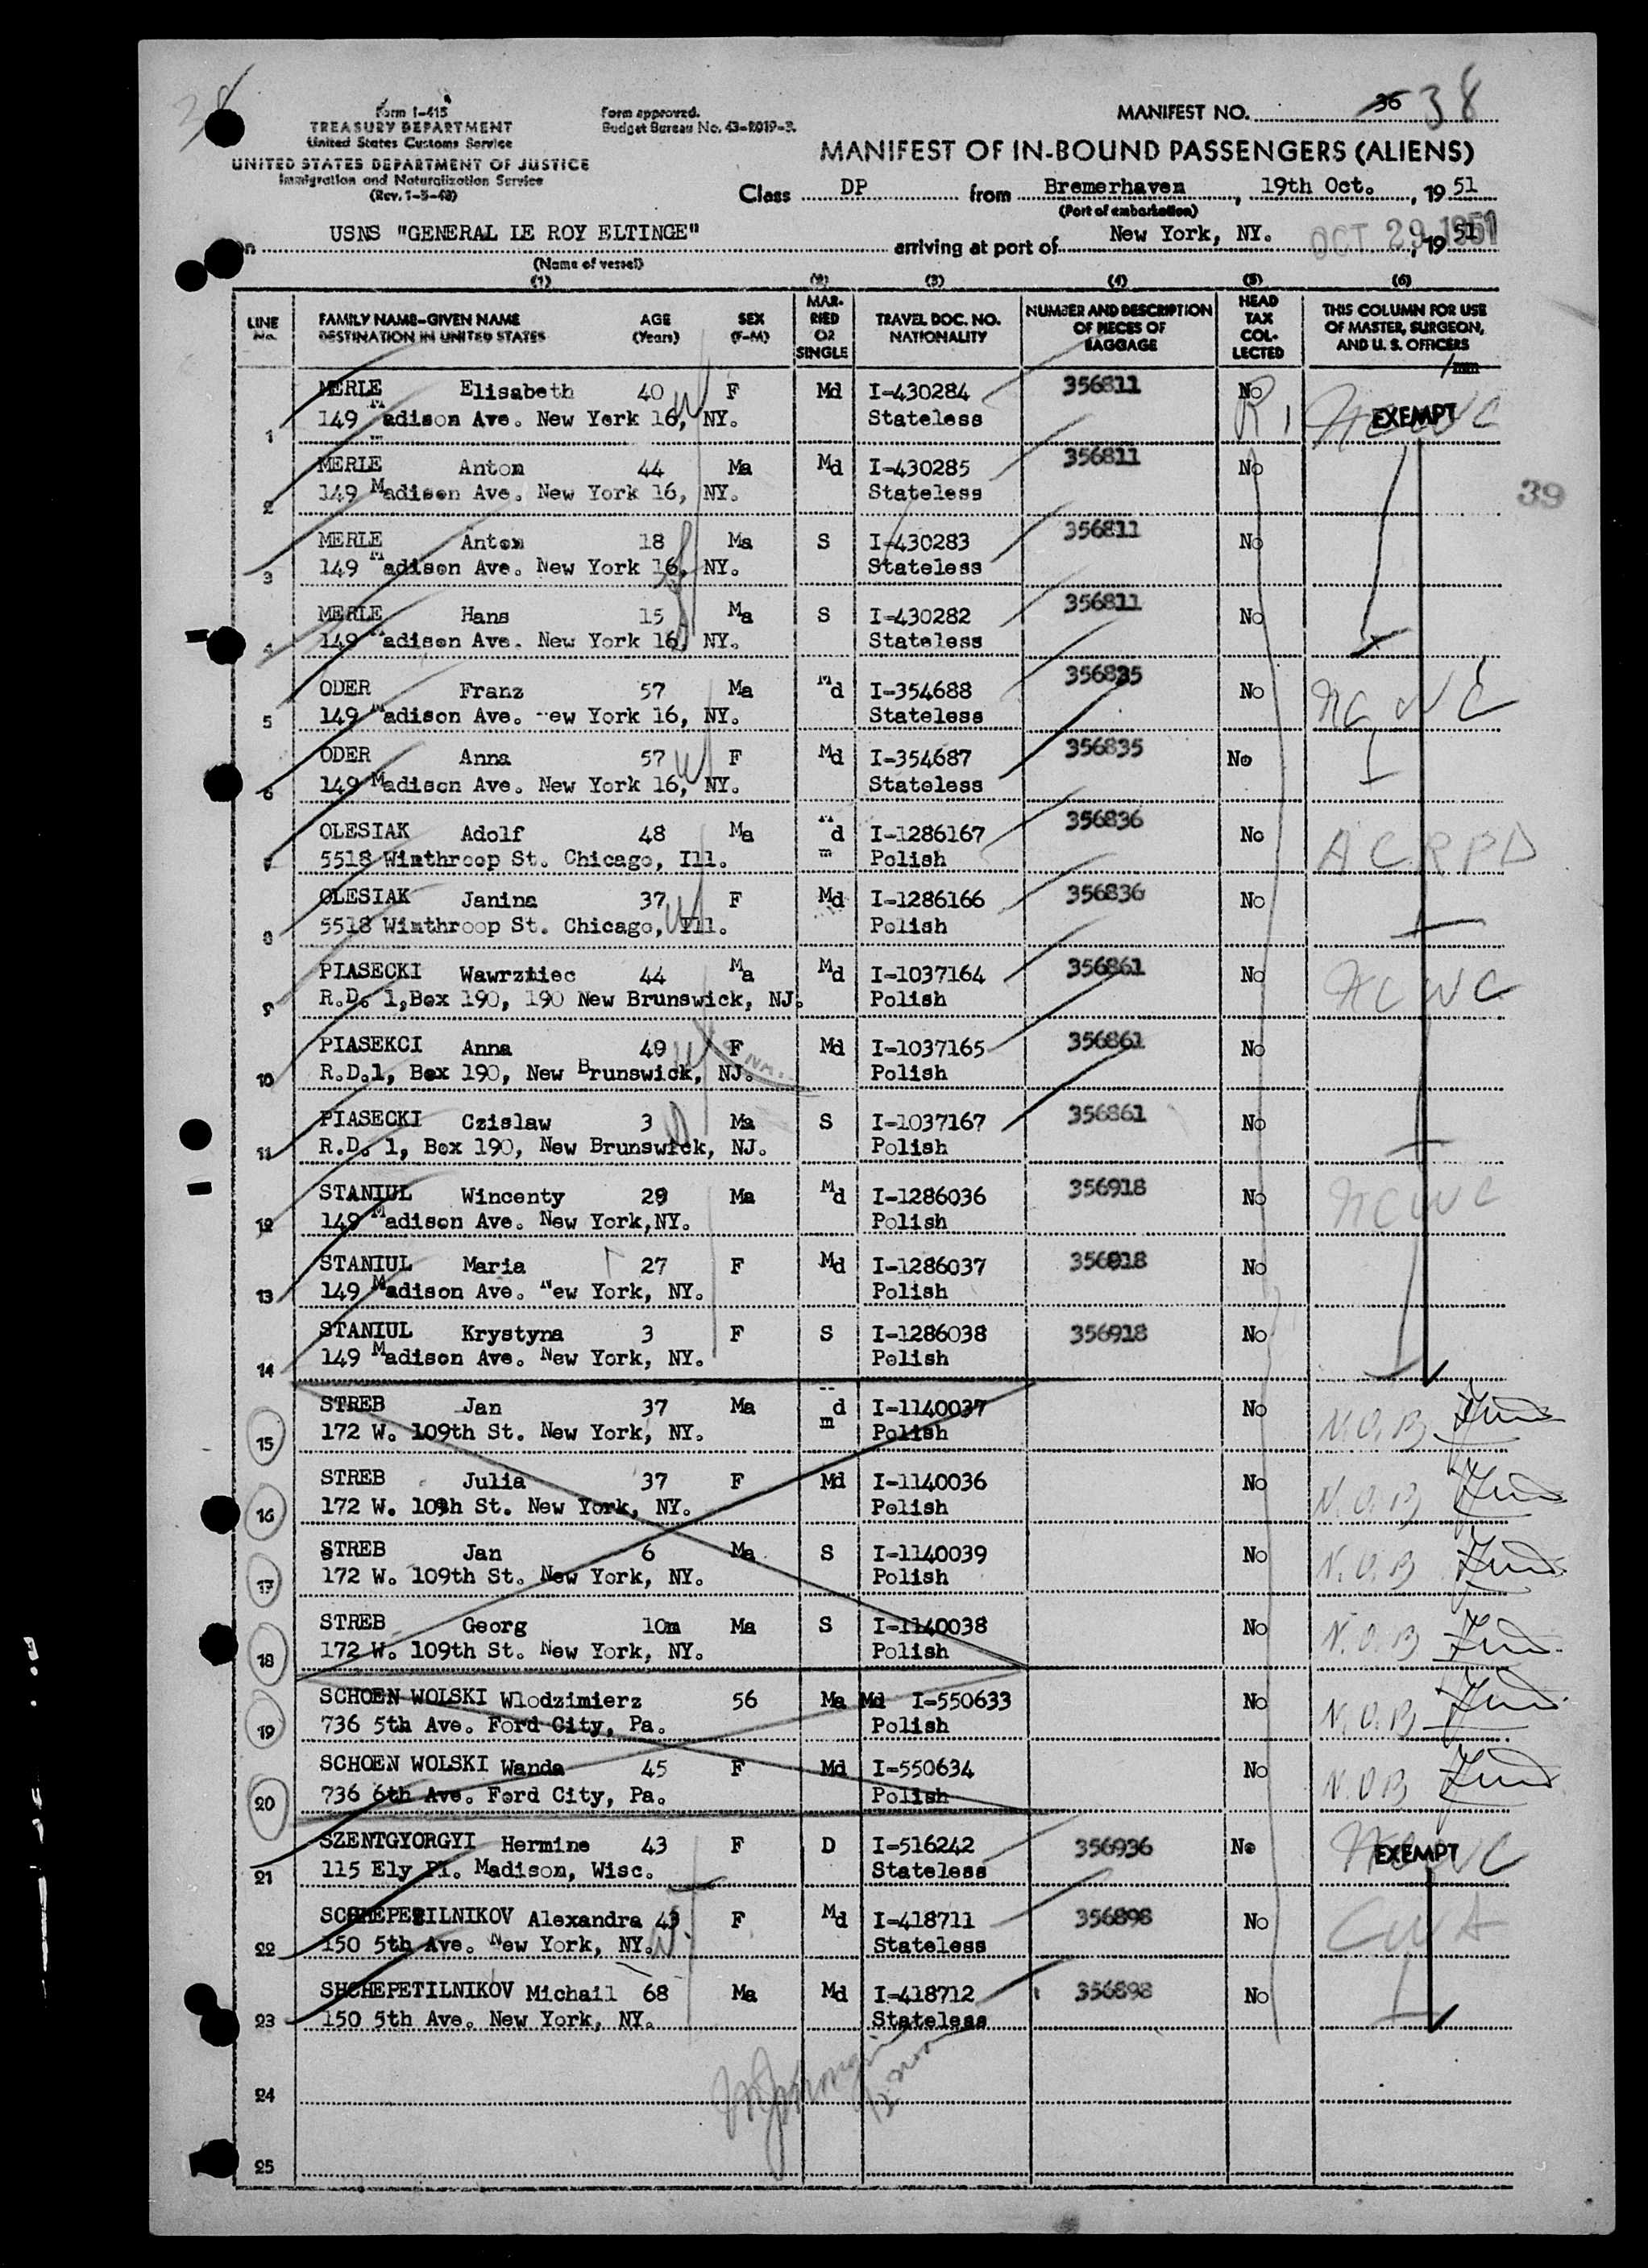 38
Form I-415
TREASURY DEPARTMENT
United States Customs Service
UNITED STATES DEPARTMENT OF JUSTICE
Immigration and Naturalization Service
(Rev. 1-5-48)
Form approved.
Budget Bureau No. 43-R019-3.
MANIFEST NO. 36 38
MANIFEST OF IN-BOUND PASSENGERS (ALIENS)
Class DP from Bremerhaven, 19th Oct., 19 51
(Port of embarkation)
on USNS "GENERAL LE ROY ELTINGE" arriving at port of New York, NY. OCT 29 1951, 19 51
(Name of vessel)
(1) (2) (3) (4) (5) (6)
LINE No. FAMILY NAME-GIVEN NAME DESTINATION IN UNITED STATES AGE (Years) SEX (F-M) MARRIED OR SINGLE TRAVEL DOC. NO. NATIONALITY NUMBER AND DESCRIPTION OF PIECES OF BAGGAGE HEAD TAX COLLECTED THIS COLUMN FOR USE OF MASTER, SURGEON, AND U. S. OFFICERS
1 MERLE Elisabeth 40 F Md I-430284 356811 No EXEMPT NCWC
149 Madison Ave. New York 16, NY. Stateless
2 MERLE Anton 44 Ma Md I-430285 356811 No
149 Madison Ave. New York 16, NY. Stateless
39
3 MERLE Anton 18 Ma S I-430283 356811 No
149 Madison Ave. New York 16, NY. Stateless
4 MERLE Hans 15 Ma S I-430282 356811 No
149 Madison Ave. New York 16, NY. Stateless
5 ODER Franz 57 Ma Md I-354688 356835 No NCWC
149 Madison Ave. ew York 16, NY. Stateless
6 ODER Anna 57 F Md I-354687 356835 No
149 Madison Ave. New York 16, NY. Stateless
7 OLESIAK Adolf 48 Ma d I-1286167 356836 No ACRPD
5518 Winthroop St. Chicago, Ill. m Polish
8 OLESIAK Janina 37 F Md I-1286166 356836 No
5518 Winthroop St. Chicago, Ill. Polish
9 PIASECKI 44 Ma Md I-1037164 356861 No NCWC
R.D. 1,Box 190, 190 New Brunswick, NJ. Polish
10 PIASEKCI Anna 49 F Md I-1037165 356861 No
R.D.1, Box 190, New Brunswick, NJ. Polish
11 PIASECKI Czislaw 3 Ma S I-1037167 356861 No
R.D. 1, Box 190, New Brunswick, NJ. Polish
12 STANIUL Wincenty 29 Ma Md I-1286036 356918 No NCWC
149 Madison Ave. New York,NY. Polish
13 STANIUL Maria 27 F Md I-1286037 356918 No
149 Madison Ave. New York, NY. Polish
14 STANIUL Krystyna 3 F S I-1286038 356918 No
149 Madison Ave. New York, NY. Polish
15 STREB Jan 37 Ma d I-1140037 No N.O.B
172 W. 109th St. New York, NY. m Polish
16 STREB Julia 37 F Md I-1140036 No N.O.B
172 W. 109h St. New York, NY. Polish
17 STREB Jan 6 Ma S I-1140039 No N.O.B
172 W. 109th St. New York, NY. Polish
18 STREB Georg 10m Ma S I-1140038 No N.O.B
172 W. 109th St. New York, NY. Polish
19 SCHOEN WOLSKI Wlodzimierz 56 Ma Md I-550633 No N.O.B
736 5th Ave. Ford City, Pa. Polish
20 SCHOEN WOLSKI Wanda 45 F Md I-550634 No N.O.B
736 6th Ave. Ford City, Pa. Polish
21 SZENTGYORGYI Hermine 43 F D I-516242 356936 No EXEMPT NCWC
115 Ely Pl. Madison, Wisc. Stateless
22 Alexandra 45 F Md I-418711 356898 No CWA
150 5th Ave. New York, NY. Stateless
23 SHCHEPETILNIKOV Michail 68 Ma Md I-418712 356898 No
150 5th Ave. New York, NY. Stateless
24
25